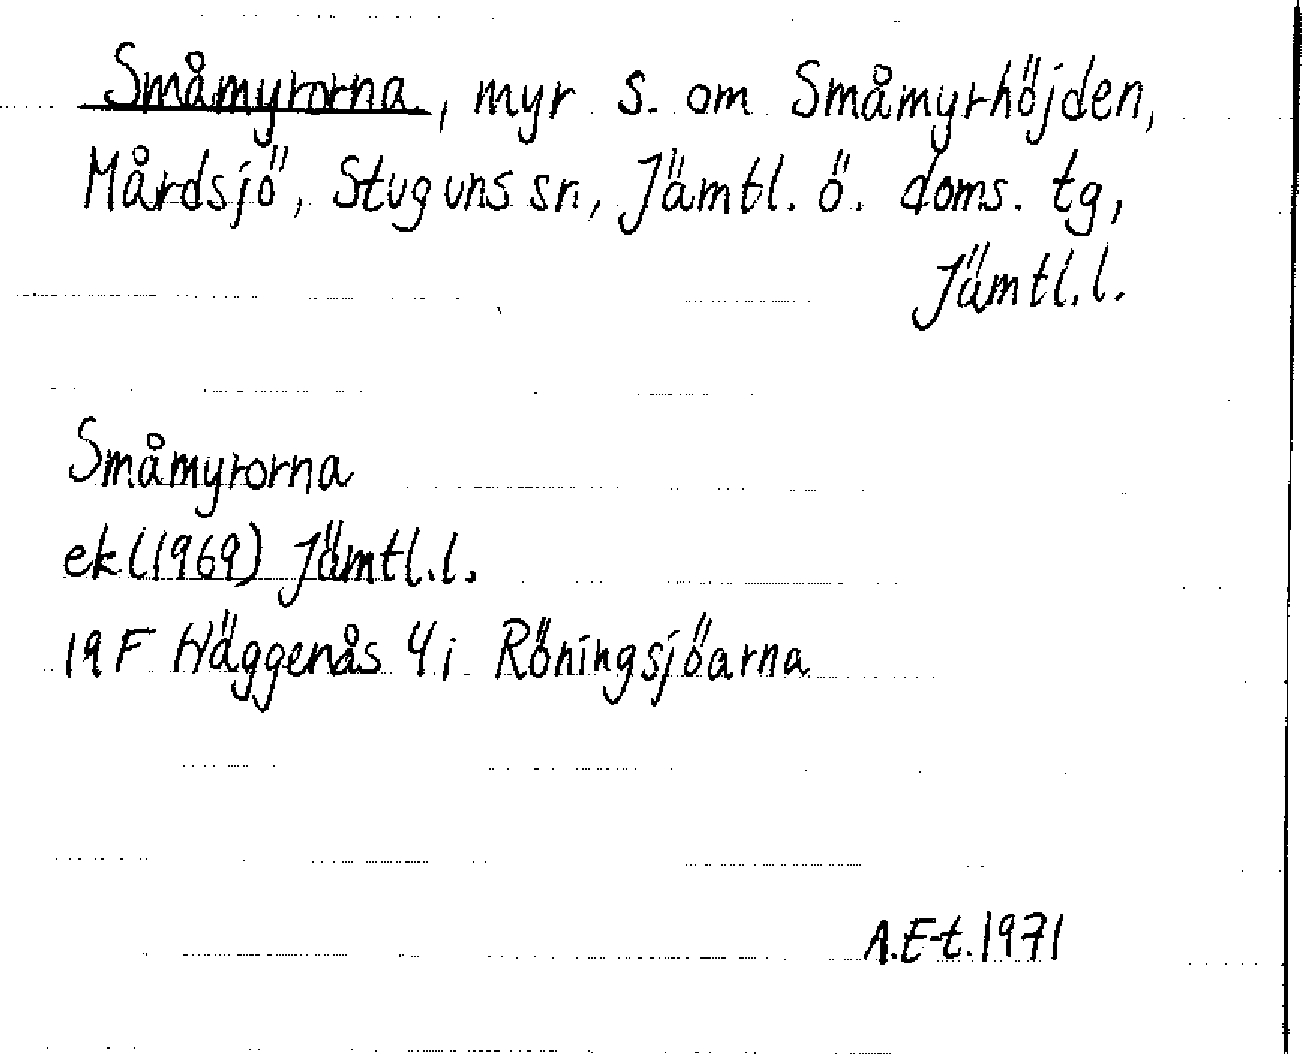 Småmyrorna, myr s. om Småmyrhöjden,
Mårdsjö, Stuguns sn, Jämtl. ö. doms. tg,
Jämtl.l.
Småmyrorna
ek(1969) Jämtl.l.
19F Häggenås 4i Röningsjöarna
A.E-t.1971